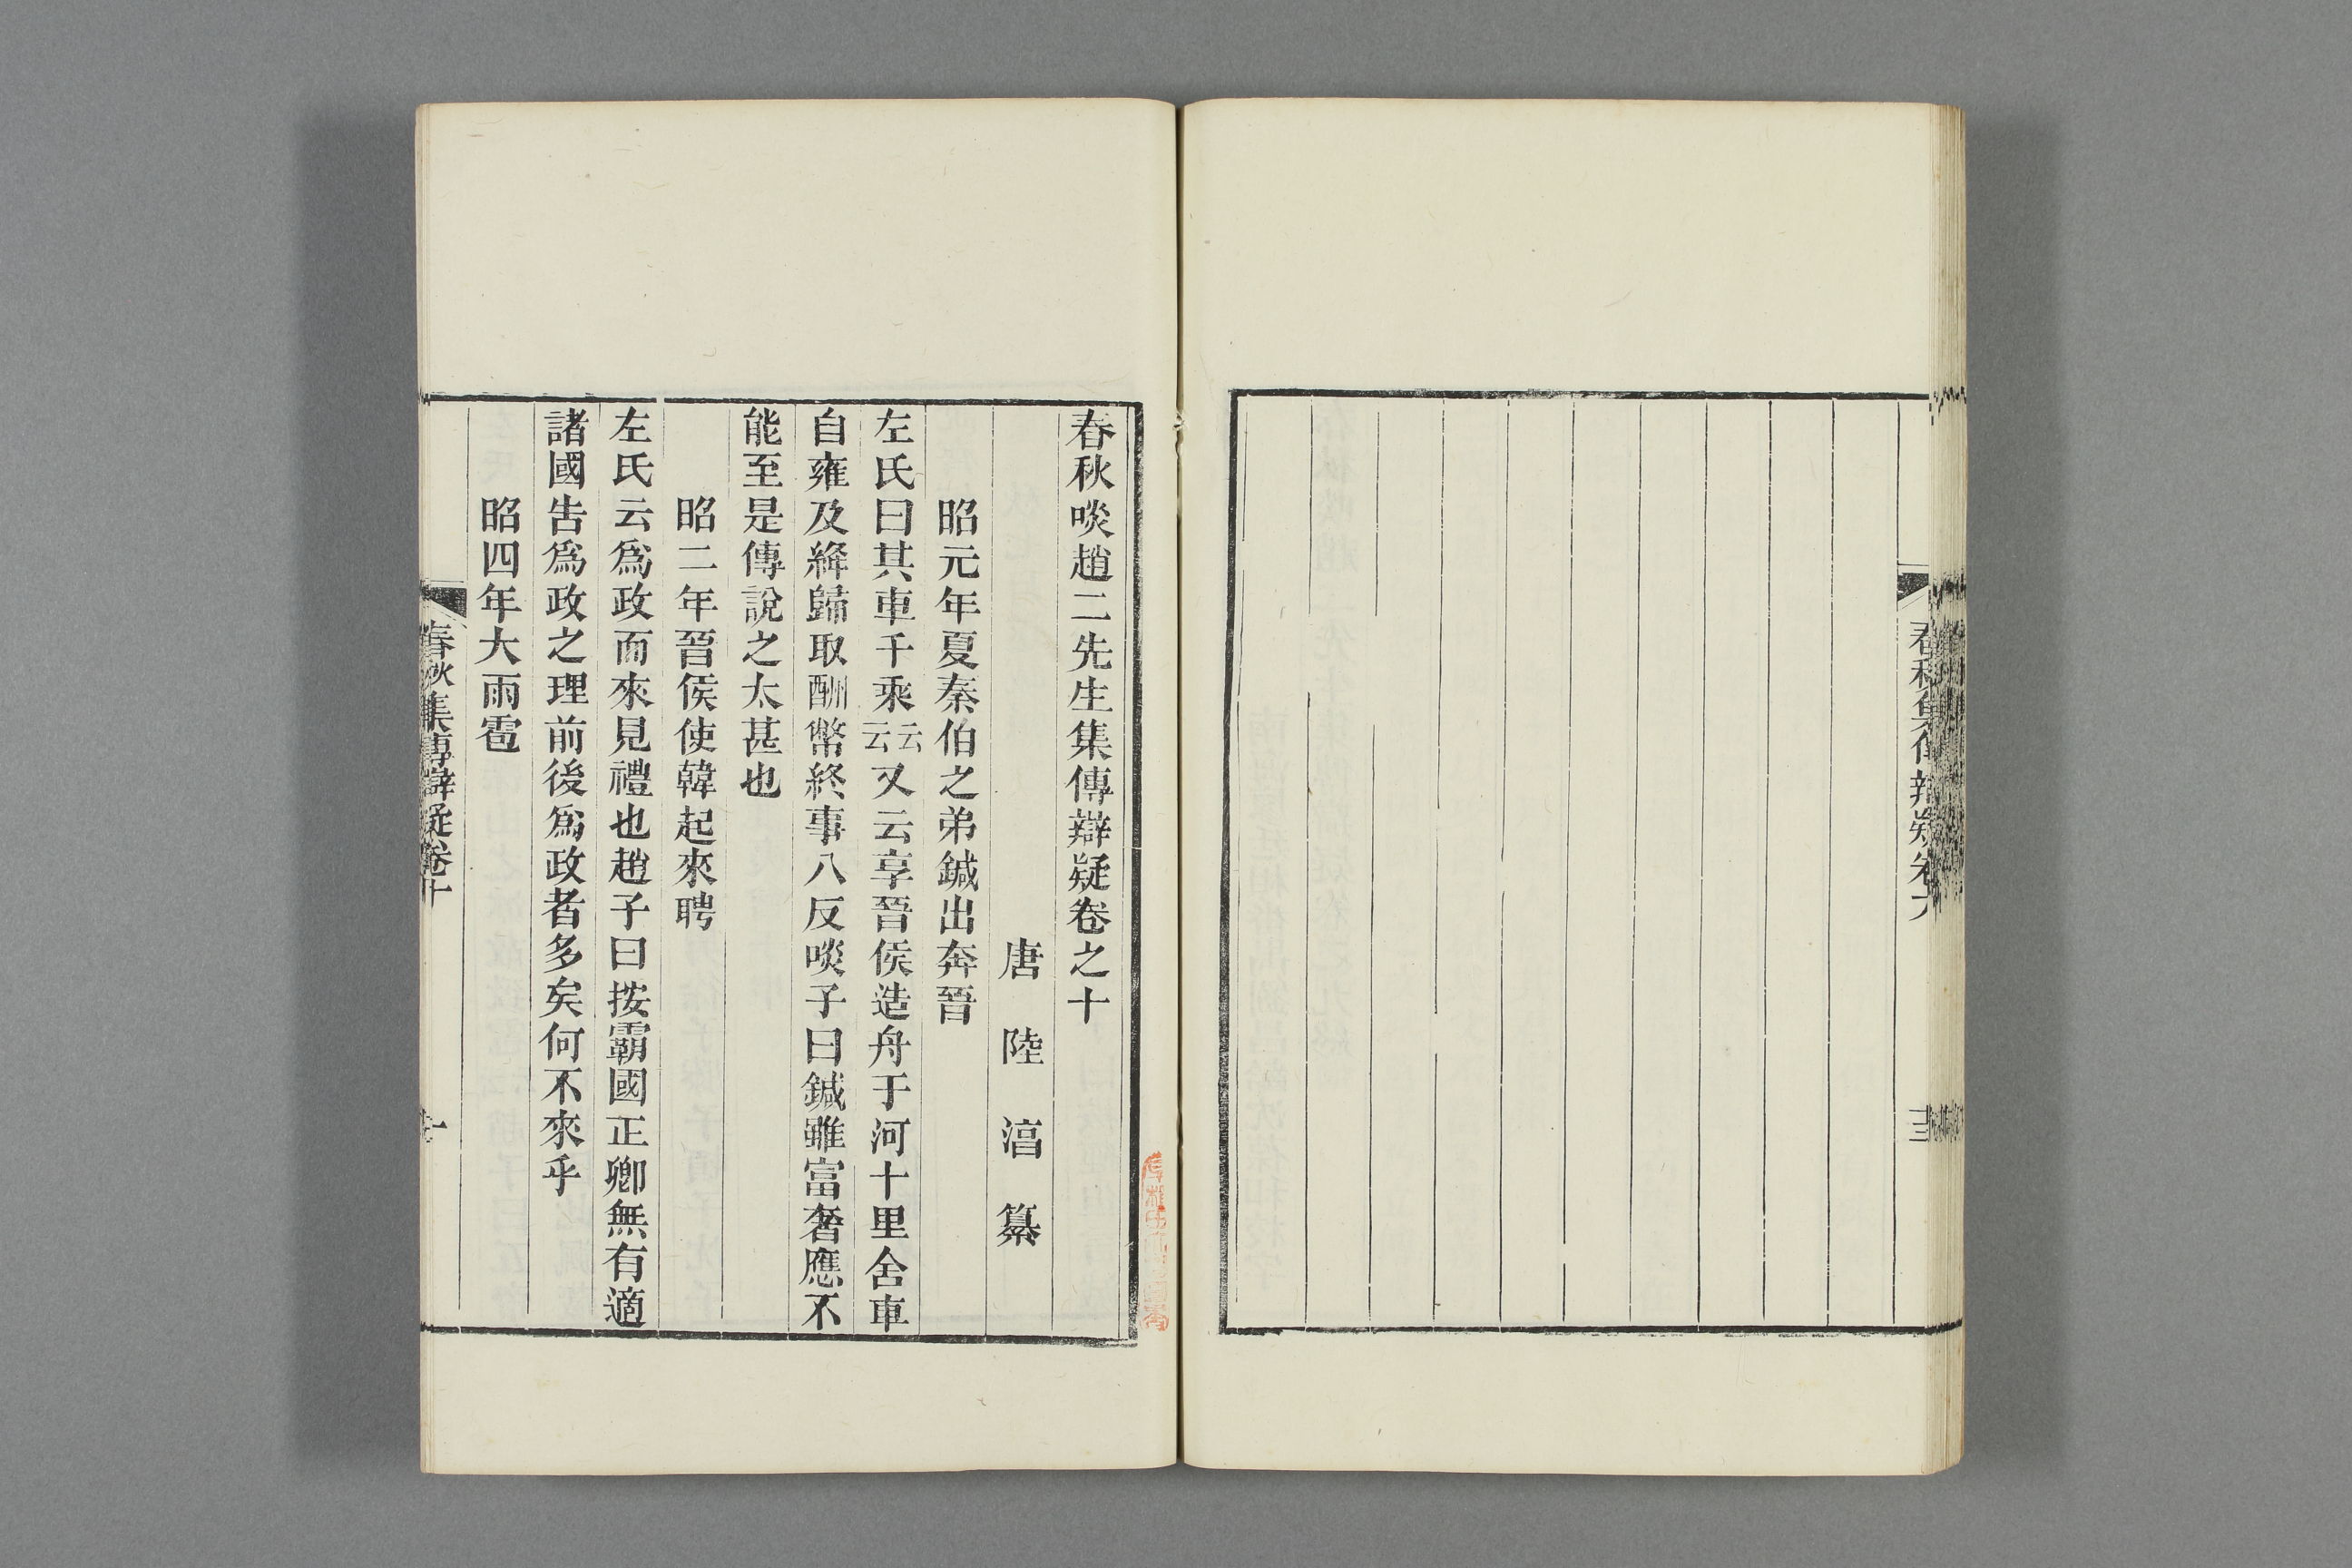 春秋啖趙二先生集傳辯疑卷之十
唐陸淳纂
昭元年夏秦伯之弟鍼出奔晉
左氏曰其車千乘云云又云享晉侯造舟于河十里舍車
自雍及絳歸取酬幣終事八反啖子曰鍼雖富奢應不
能至是傳說之太甚也
昭二年晉侯使韓起來聘
左氏云爲政而來見禮也趙子曰按霸國正卿無有適
諸國告爲政之理前後爲政者多矣何不來乎
昭四年大雨雹
春秋集傳辯疑卷十
一